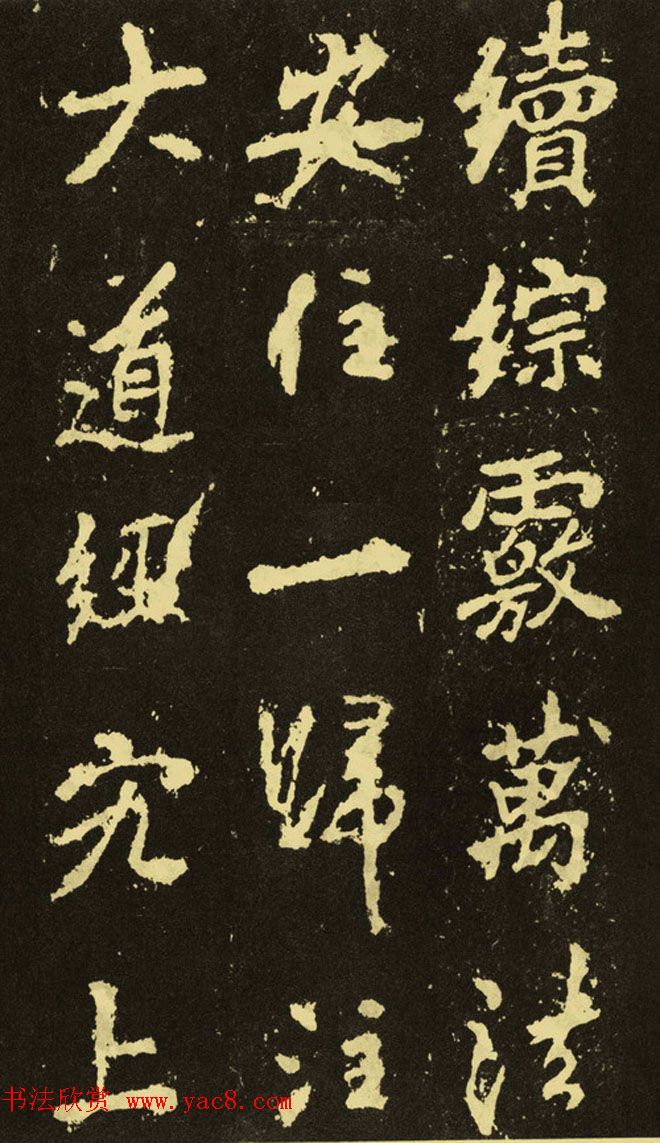 續綜覈萬法
安住一歸注
大道經究上
书法欣赏 www.yac8.com